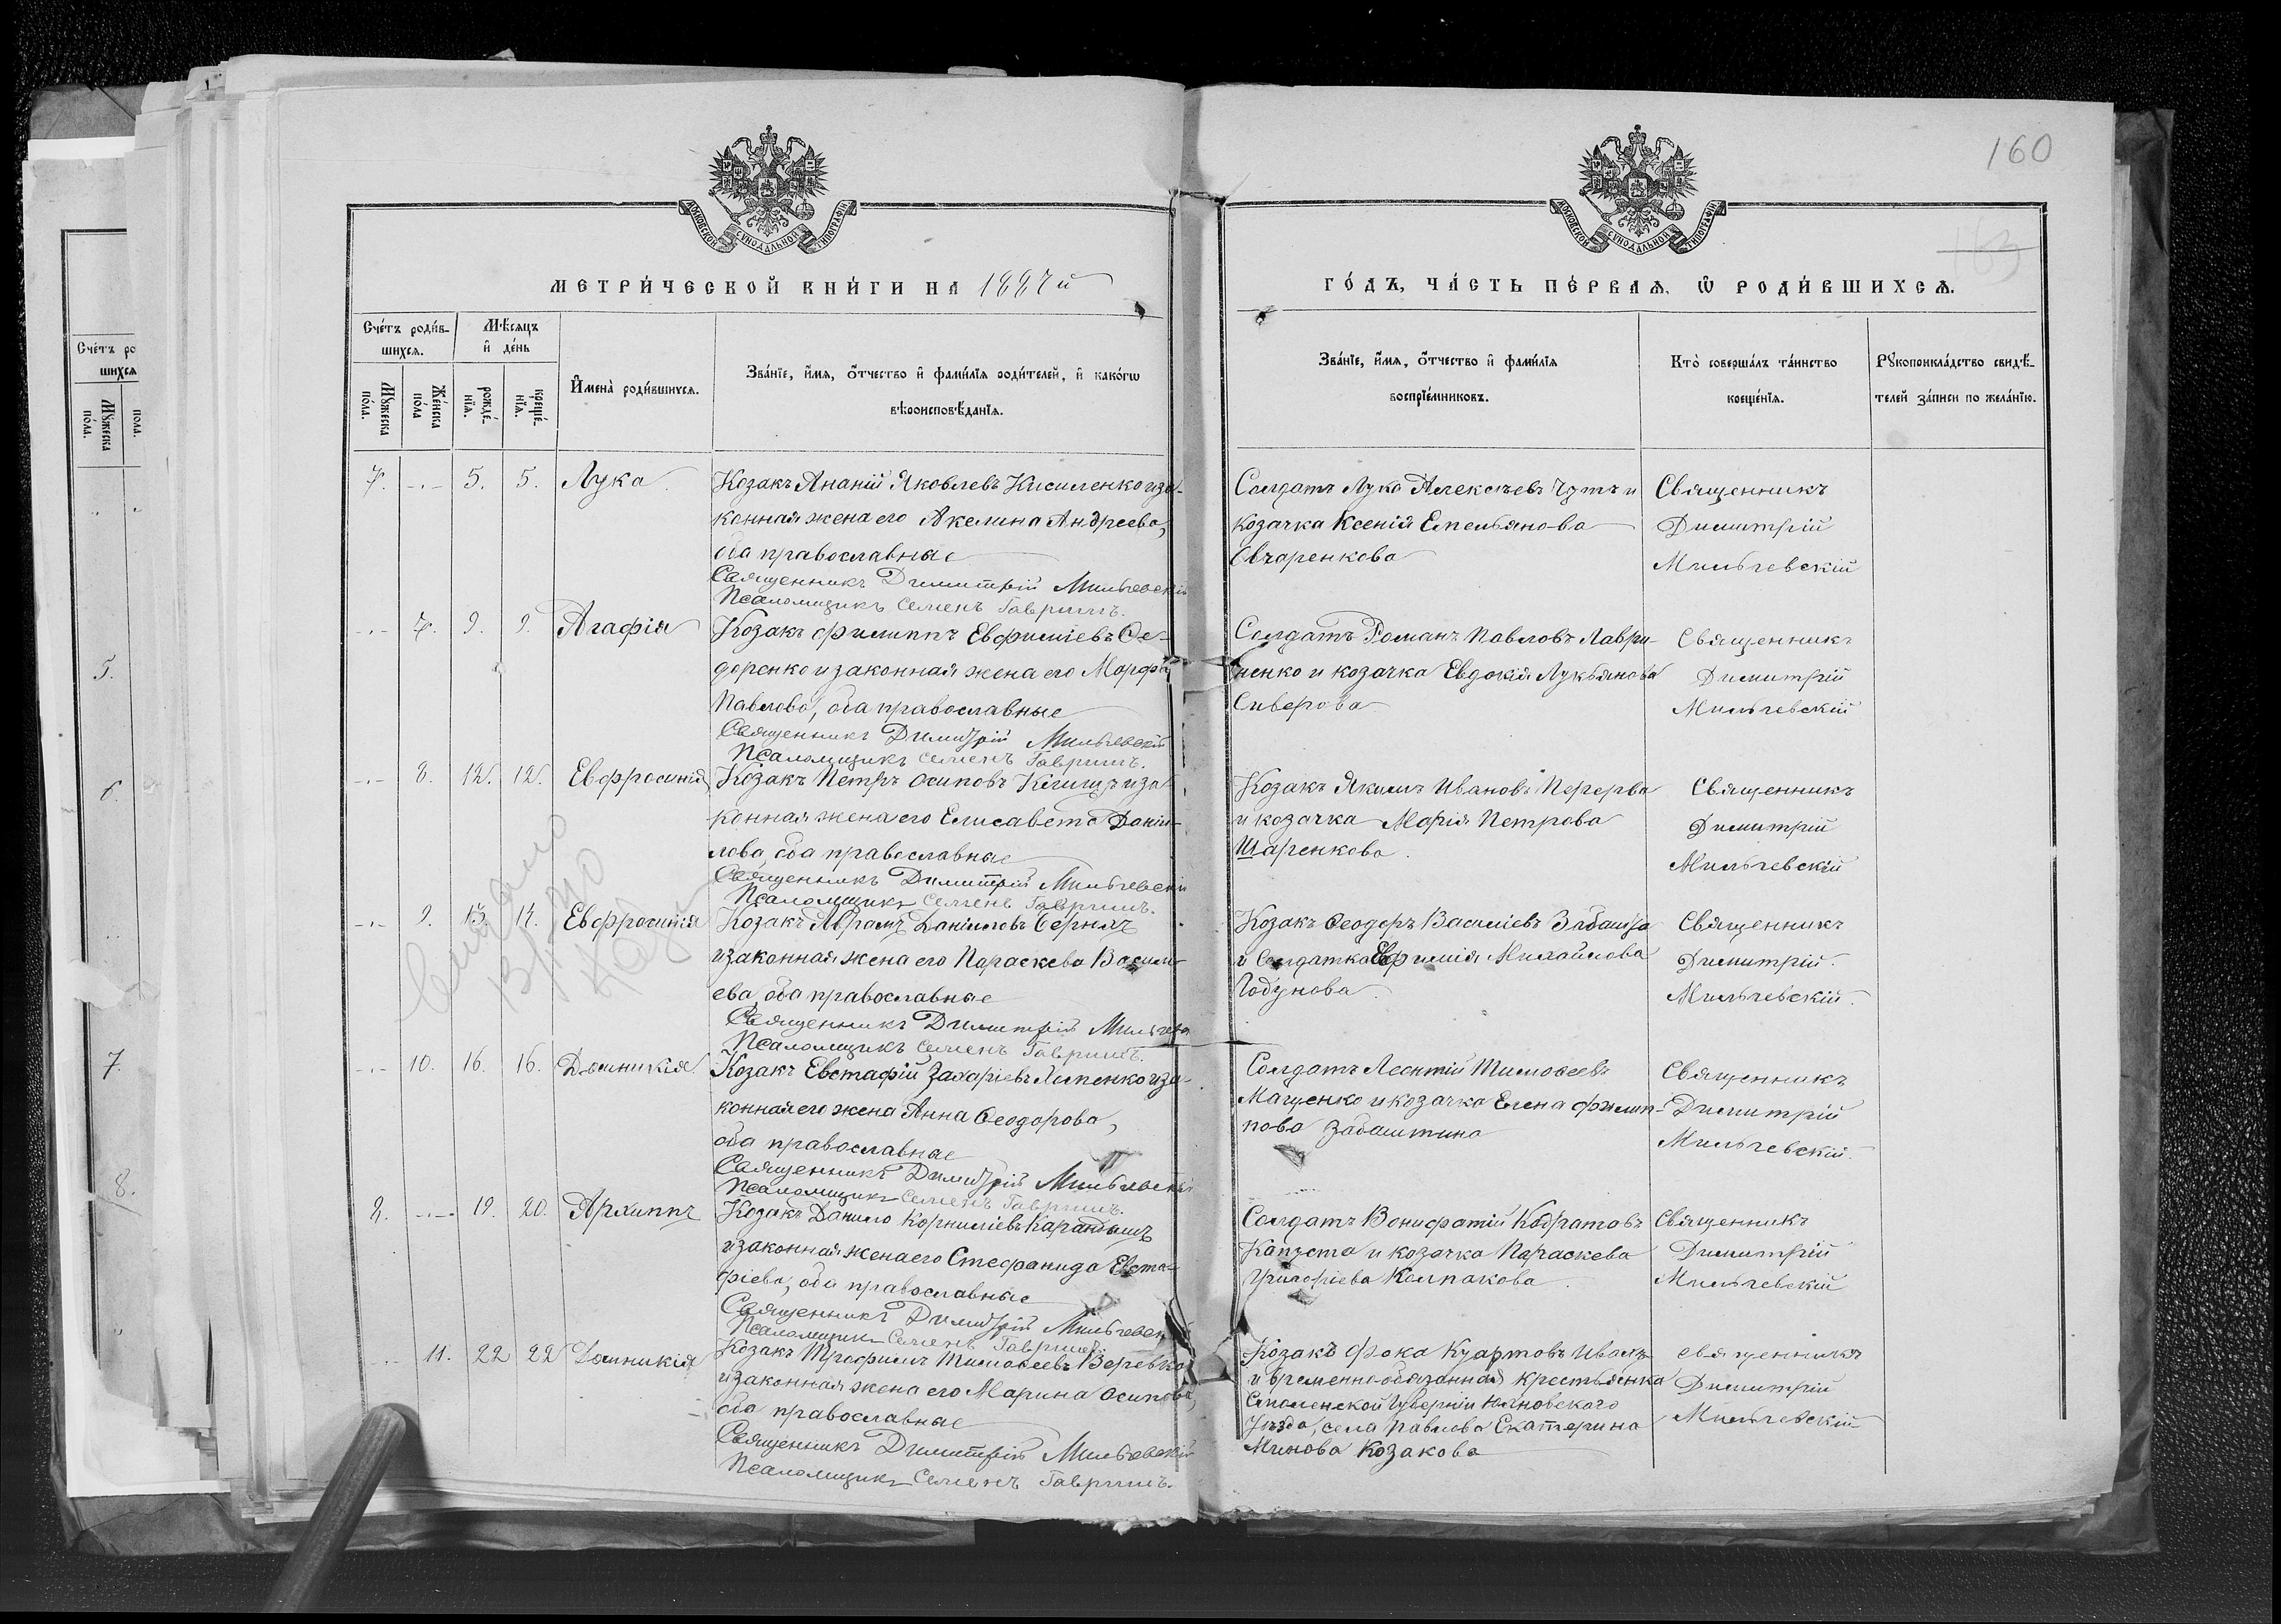 160
163
МОСКОВСКОЙ СѴНОДАЛЬНОЙ ТИПОГРАФІИ
МОСКОВСКОЙ СѴНОДАЛЬНОЙ ТИПОГРАФІИ
МЕТРИ́ЧЕСКОЙ КНИ́ГИ НА 1887й
ГО́ДЪ, ЧА́СТЬ ПЕ́РВАЯ, Ѡ РОДИ́ВШИХСѦ.
Сче́тъ роди́в-
шихсѧ.
Мѣ́сѧцъ
и҆ де́нь
Мꙋ́жеска по́ла.
Же́нска по́ла
рожде́-нїѧ.
креще́-нїѧ.
И҆мена̀ роди́вшихсѧ.
Зва́нїе, и҆́мѧ, ѻ҆́тчество и҆ фами́лїѧ роди́телей, и҆ како́гѡ
вѣроисповѣ́данїѧ.
Зва́нїе, и҆́мѧ, ѻ҆́тчество и҆ фами́лїѧ
воспрїе́мниковъ.
Кто̀ соверша́лъ та́инство
креще́нїѧ.
Рꙋкоприкла́дство свидѣ́-
телей за́писи по жела́нїю.
7. -.- 5. 5. Лука
Козакъ Ананій Яковлевъ Кисиленко и за-
конная жена его Акелина Андреева,
оба православные
Священникъ Димитрій Мильчевскій
Псаломщикъ Семенъ Гавришъ.
Солдатъ Лука Алексѣевъ и
козачка Ксенія Емельянова
Овчаренкова
Священникъ
Димитрій
Мильчевскій
-.- 7. 9. 9. Агафія
Козакъ Филиппъ Евфиміевъ Ѳе-
доренко и законная жена его Марфа
Павлова, оба православные
Священникъ Димитрій Мильчевскій
Псаломщикъ Семенъ Гавришъ.
Солдатъ Романъ Павловъ Лаври-
ненко и козачка Евдокія Лукьянова
Сиверова
Священникъ
Димитрій
Мильчевскій
-.- 8. 12. 12. Евфросинія
Козакъ Петръ Осиповъ и за
конная жена его Елисавета Даніи-
лова, оба православные
Священникъ Димитрій Мильчевскій
Псаломщикъ Семенъ Гавришъ.
Козакъ Якимъ Ивановъ Перерва
и козачка Марія Петрова
Шаренкова.
Священникъ
Димитрій
Мильчевскій
-.- 9. 13. 14. Евфросинія
Козакъ Аврамъ Даніиловъ
и законная жена его Параскева Васили-
ева, оба православные
Священникъ Димитрій
Псаломщикъ Семенъ Гавришъ.
Козакъ Ѳеодоръ Василіевъ
и Солдатка Евфимія Михайлова
Годунова.
Священникъ
Димитрій.
Мильчевскій.
-.- 10. 16. 16. Домникія
Козакъ Евстафій Захаріевъ и за-
конная его жена Анна Ѳеодорова,
оба православные
Священникъ Димитрій Мильчевскій
Псаломщикъ Семенъ Гавришъ.
Солдатъ Леонтій Тимоѳеевъ
Мащенко и козачка Елена Филип-
пова Забаштина
Священникъ
Димитрій
Мильчевскій.
8. -.- 19. 20. Архиппъ
Козакъ Данило Корниліевъ
и законная жена его Стефанида Евста-
фіева, оба православные
Священникъ Димитрій
Псаломщикъ Семенъ Гавришъ.
Солдатъ Вонифатій Кодратовъ
Капуста и козачка Параскева
Григоріева Колпакова.
Священникъ
Димитрій
Мильчевскій
-.- 11. 22 22 Домникія
Козакъ Трофимъ Тимоѳеевъ Веревка
и законная жена его Марина Осипова,
оба православные
Священникъ Димитрій Мильчевскій
Псаломщикъ Семенъ Гавришъ.
Козакъ Фока
и временно-обязанная крестьянка
Смоленской Губерніи Юхновскаго
Уѣзда, села Павлова Екатерина
Минова Козакова
священникъ
Димитрій
Мильчевскій
Сче́тъ ро
шихсѧ
Мꙋ́жеска по́ла.
пола.
5.
6.
7.
8.